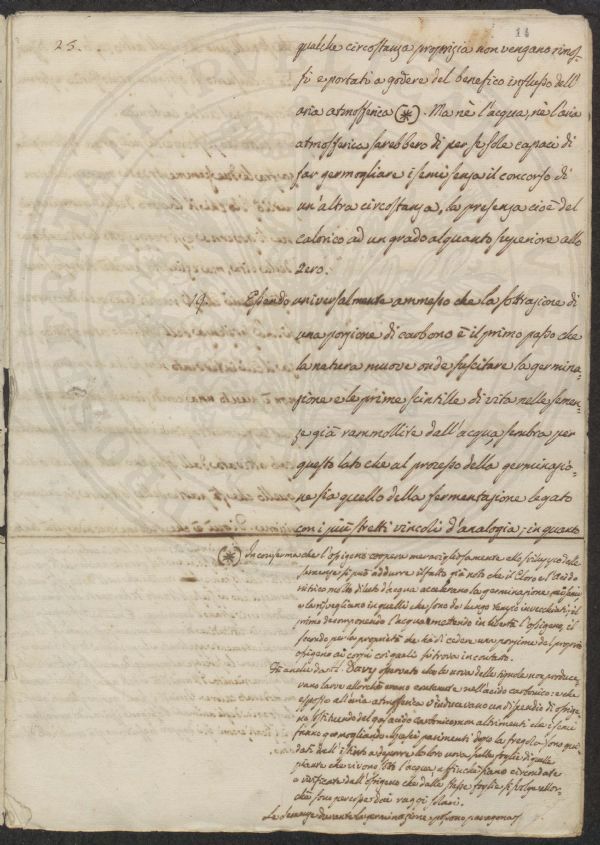 11
25.
qualche circostanza propizia non vengano rimos-
si e portati a godere del benefico influsso dell'
aria atmosferica (*). Ma nè l'acqua, nè l'aria
atmosferica sarebbero di per se sole capaci di
far germogliare i semi senza il concorso di
un'altra circostanza, la presenza cioè del
calorico ad un grado alquanto superiore allo
zero.
19. Essendo universalmente ammesso che la sottrazione di
una porzione di carbonio è il primo passo che
la natura muove onde suscitare la germina-
zione e le prime scintille di vita nelle semen-
ze già rammollite dall'acqua, sembra per
questo lato che al processo della germinazio-
ne sia quello della fermentazione legato
con i più stretti vincoli d'analogia, in quanto
(*) In conferma che l'ossigeno coopera maravigliosamente allo sviluppo delle
semenze si può addurre il fatto già noto che il Cloro e l'Acido
nitrico molto diluto d'acqua accelerano la germinazione
e la risvegliano in quelli che sono da lungo tempo invecchiati; il
primo decomponendo l'acqua e mettendo in libertà l'ossigeno, il
secondo per la proprietà che ha di cedere una porzione del proprio
ossigeno ai corpi coi quali si trova in contatto.
Fu anche da Davy osservato che le uova delle non produce-
vano larve allorchè erano contenute nell'acido carbonico; e che
esposte all'aria atmosferica v'inducevano un dispendio di ossige-
no sostituendo del gas acido carbonico non altrimenti che i semi
fanno germogliando. parimenti dopo la fregola sono gui-
dati dall'istinto a deporre le loro uova sulle foglie di quelle
piante che vivono sott'acqua, affinchè siano circondate
e vivificate dall'ossigeno che dalle stesse foglie si svolge allor-
chè sono percosse dai raggi solari.
Le semenze durante la germinazione possono paragonarsi